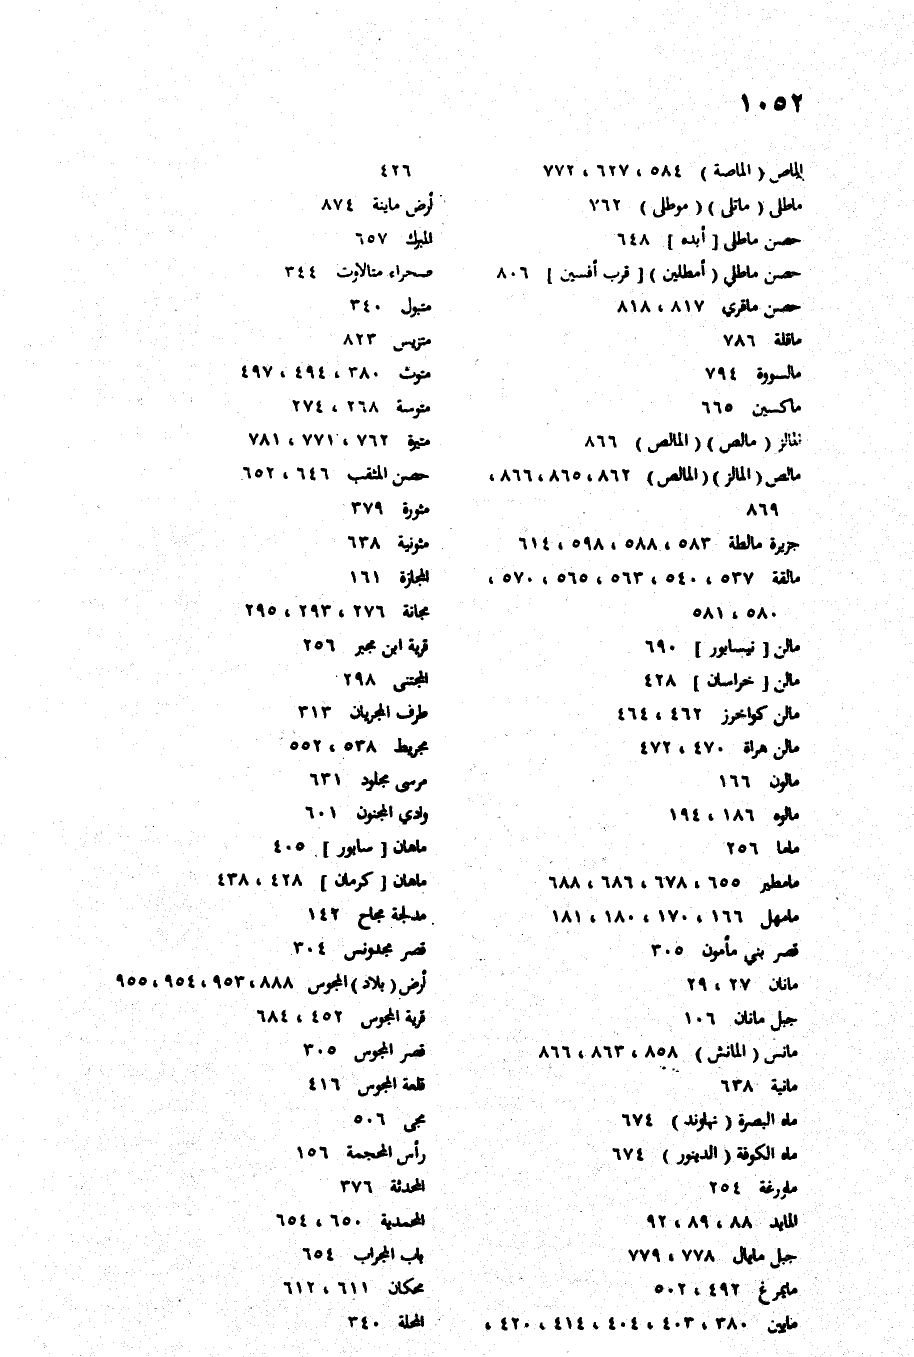 ١٠٥٢
الماص ( الماصة ) ٥٨٤ ، ٦٢٧ ، ٧٧٢
ماطلى ( ماتلى ) ( موطلى ) ٧٦٢
حصن ماطلى [ أبده ] ٦٤٨
حصن ماطلي ( أمطلين ) [ قرب أفسين ] ٨٠٦
حصن ماقري ٨١٧ ، ٨١٨
ماقلة ٧٨٦
مالسووة ٧٩٤
ماكسين ٦٦٥
نقالز ( مالص ) ( المالص ) ٨٦٦
مالص ( المالز ) ( المالص ) ٨٦٢ ، ٨٦٥ ، ٨٦٦ ،
٨٦٩
جزيرة مالطة ٥٨٣ ، ٥٨٨ ، ٥٩٨ ، ٦١٤
مالقة ٥٣٧ ، ٥٤٠ ، ٥٦٣ ، ٥٦٥ ، ٥٧٠ ،
٥٨٠ ، ٥٨١
مالن [ نيسابور ] ٦٩٠
مالن [ خراسان ] ٤٢٨
مالن كواخرز ٤٦٢ ، ٤٦٤
مالن هراة ٤٧٠ ، ٤٧٢
مالون ١٦٦
مالوه ١٨٦ ، ١٩٤
ماما ٢٥٦
مامطير ٦٥٥ ، ٦٧٨ ، ٦٨٦ ، ٦٨٨
مامهل ١٦٦ ، ١٧٠ ، ١٨٠ ، ١٨١
قصر بني مأمون ٣٠٥
مانان ٢٧ ، ٢٩
جبل مانان ١٠٦
مانس ( المانش ) ٨٥٨ ، ٨٦٣ ، ٨٦٦
مانية ٦٣٨
ماه البصرة ( نهاوند ) ٦٧٤
ماه الكوفة ( الدينور ) ٦٧٤
ماورغة ٢٥٤
المايد ٨٨ ، ٨٩ ، ٩٢
جبل مايمال ٧٧٨ ، ٧٧٩
مايمرغ ٤٩٢ ، ٥٠٢
مايين ٣٨٠ ، ٤٠٣ ، ٤٠٤ ، ٤١٤ ، ٤٢٠ ،
٤٢٦
أرض ماينة ٨٧٤
المبرك ٦٥٧
صحراء متالاوت ٣٤٤
متبول ٣٤٠
متريس ٨٢٣
متوث ٣٨٠ ، ٤٩٤ ، ٤٩٧
متوسة ٢٦٨ ، ٢٧٤
متيرة ٧٦٢ ، ٧٧١ ، ٧٨١
حصن المثقب ٦٤٦ ، ٦٥٢
مثورة ٣٧٩
مثونية ٦٣٨
المجازة ١٦١
مجانة ٢٧٦ ، ٢٩٣ ، ٢٩٥
قرية ابن مجبر ٢٥٦
المجتنى ٢٩٨
طرف المجريان ٣١٣
مجريط ٥٣٨ ، ٥٥٢
مرسى مجلود ٦٣١
وادي المجنون ٦٠١
ماهان [ سابور ] ٤٠٥
ماهان [ كرمان ] ٤٢٨ ، ٤٣٨
مدلجة مجاح ١٤٢
قصر مجدونس ٣٠٤
أرض ( بلاد ) المجوس ٨٨٨ ، ٩٥٣ ، ٩٥٤ ، ٩٥٥
قرية المجوس ٤٥٢ ، ٦٨٤
قصر المجوس ٣٠٥
قلعة المجوس ٤١٦
مجى ٥٠٦
رأس المحجمة ١٥٦
المحدثة ٣٧٦
المحمدية ٦٥٠ ، ٦٥٤
باب المجراب ٦٥٤
محكان ٦١١ ، ٦١٢
المحلة ٣٤٠